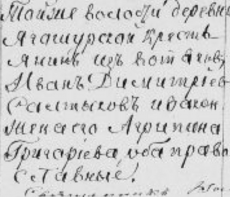 Тойже волости деревни
Ягошурской кресть
янинъ изъ вотяковъ
Иванъ Димитріев
Салтыковъ и закон
жена его Агрипина
Григоріева, оба право
славные.
Священникъ